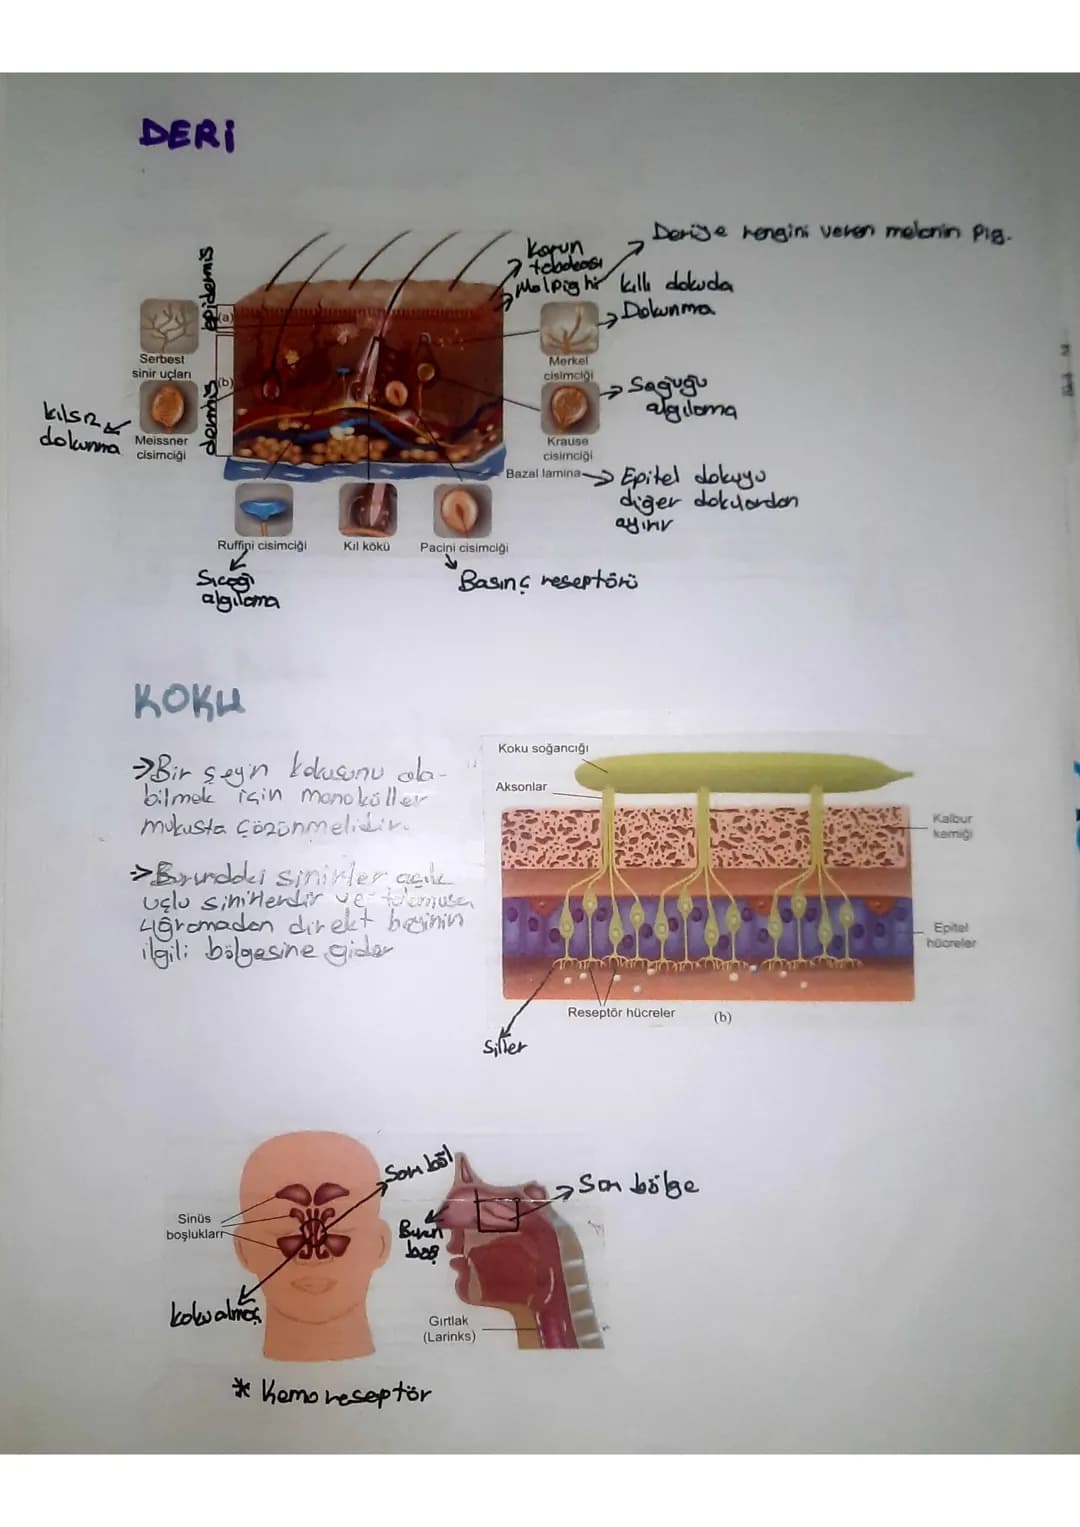 DERİ
Deriye rengini veren melanin Pig.
Korun
tabakası
Malpighi
epidermis
(a)
Kıllı dokuda
Dokunma
Serbest
sinir uçları
Merkel
cisimciği
(b)
dermis
Soğuğu
algılama
kılsız
dokunma
Meissner
cisimciği
Krause
cisimciği
Bazal lamina
Epitel dokuyu
diğer dokulardan
ayırır
Ruffini cisimciği
Kıl kökü
Pacini cisimciği
Sıcağı
algılama
Basınç reseptörü
KOKU
→Bir şeyin kokusunu ala-
bilmek için monoküller
mukusta çözünmelidir.
→Burundaki sinirler açık
uçlu sinirlerdir ve talamusa
uğramadan direkt beyinin
ilgili bölgesine gider
Koku soğancığı
Aksonlar
Kalbur
kemiği
Epitel
hücreler
Reseptör hücreler
(b)
Siller
Sarı böl
Sarı bölge
Sinüs
boşlukları
Burun
boş
koku almaç
Gırtlak
(Larinks)
* Kemoreseptör